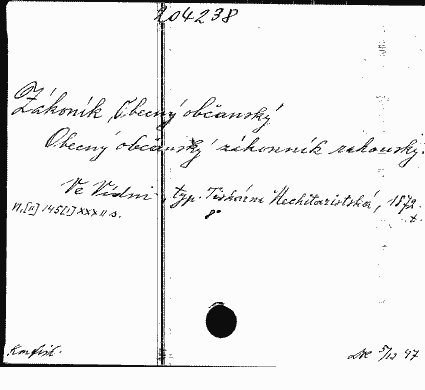 204238
Zákoník, Obecný občanský
Obecný občanský zákonník rakouský.
Ve Vídni, typ. Tiskárna Mechitaristská, 1872.
8°
VI,[II] 145[I] XXXII s.
Konfisk.
5/12 47